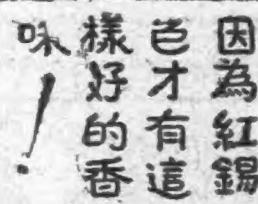 因為紅錫
包才有這
樣好的香
味！